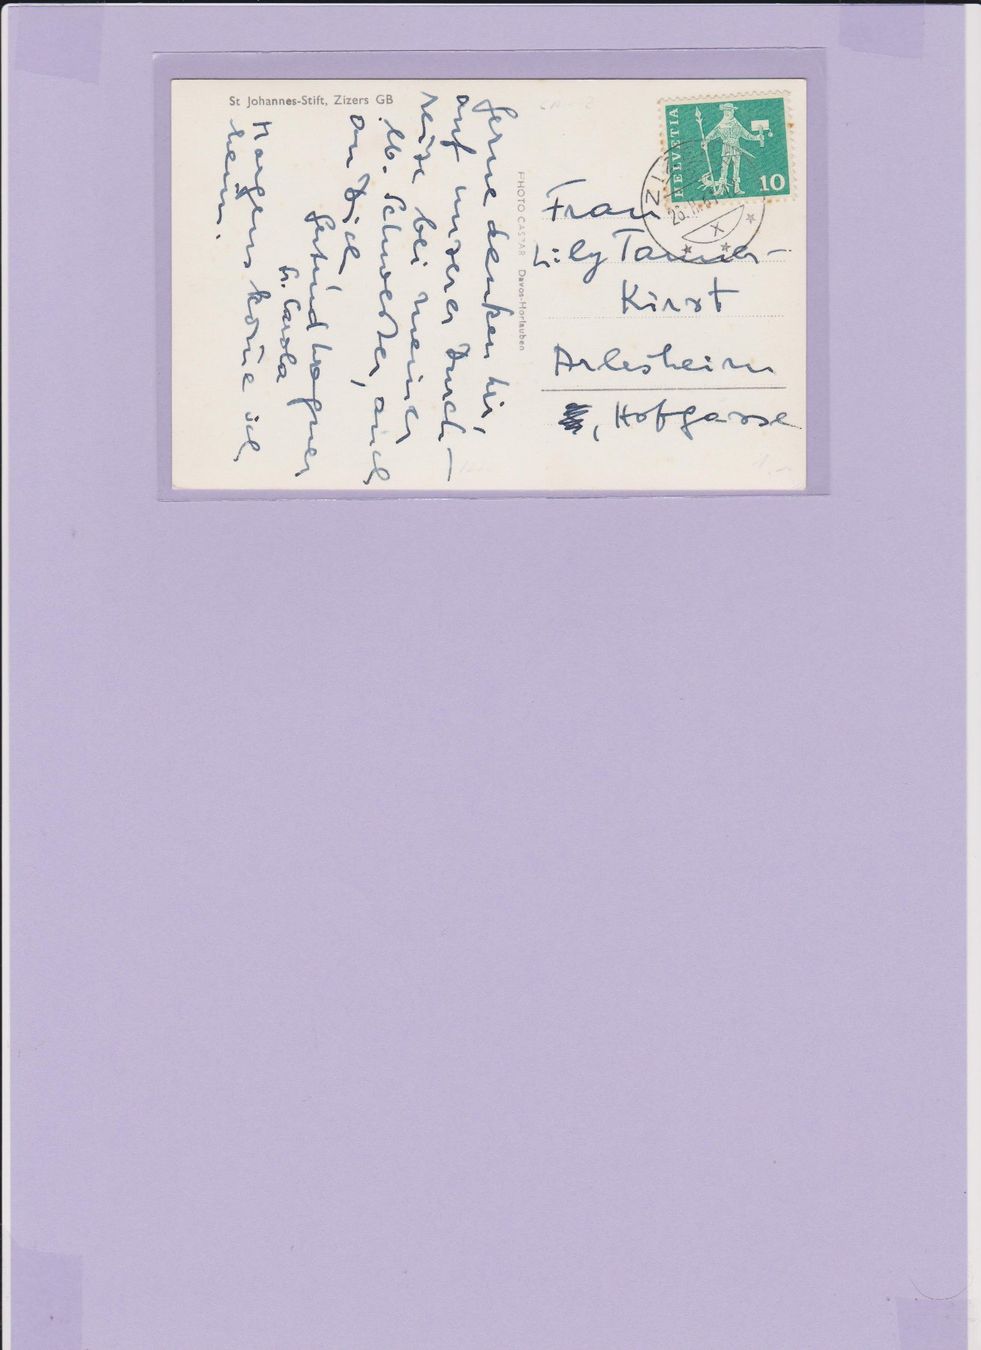 St Johannes-Stift, Zizers GB
Gerne denken wir,
auf unserer Durch-
reise bei meiner
lb. Schwester, auch
an Dich
Gertrud Wagner
Sr. Carola
Morgens komme ich
heim.
PHOTO CASTAR Davos-Horlauben
HELVETIA
10
ZIZ
26.
X
Frau
Lily Tanner-
Kirst
Arlesheim
, Hofgasse